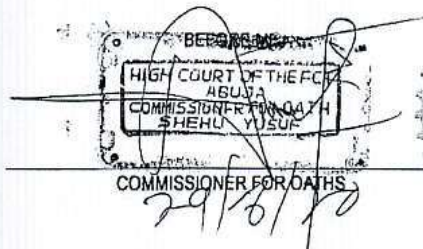 BEFORE ME
HIGH COURT OF THE FCT
ABUJA
COMMISSIONER FOR OATH
SHEHU YUSUF
COMMISSIONER FOR OATHS